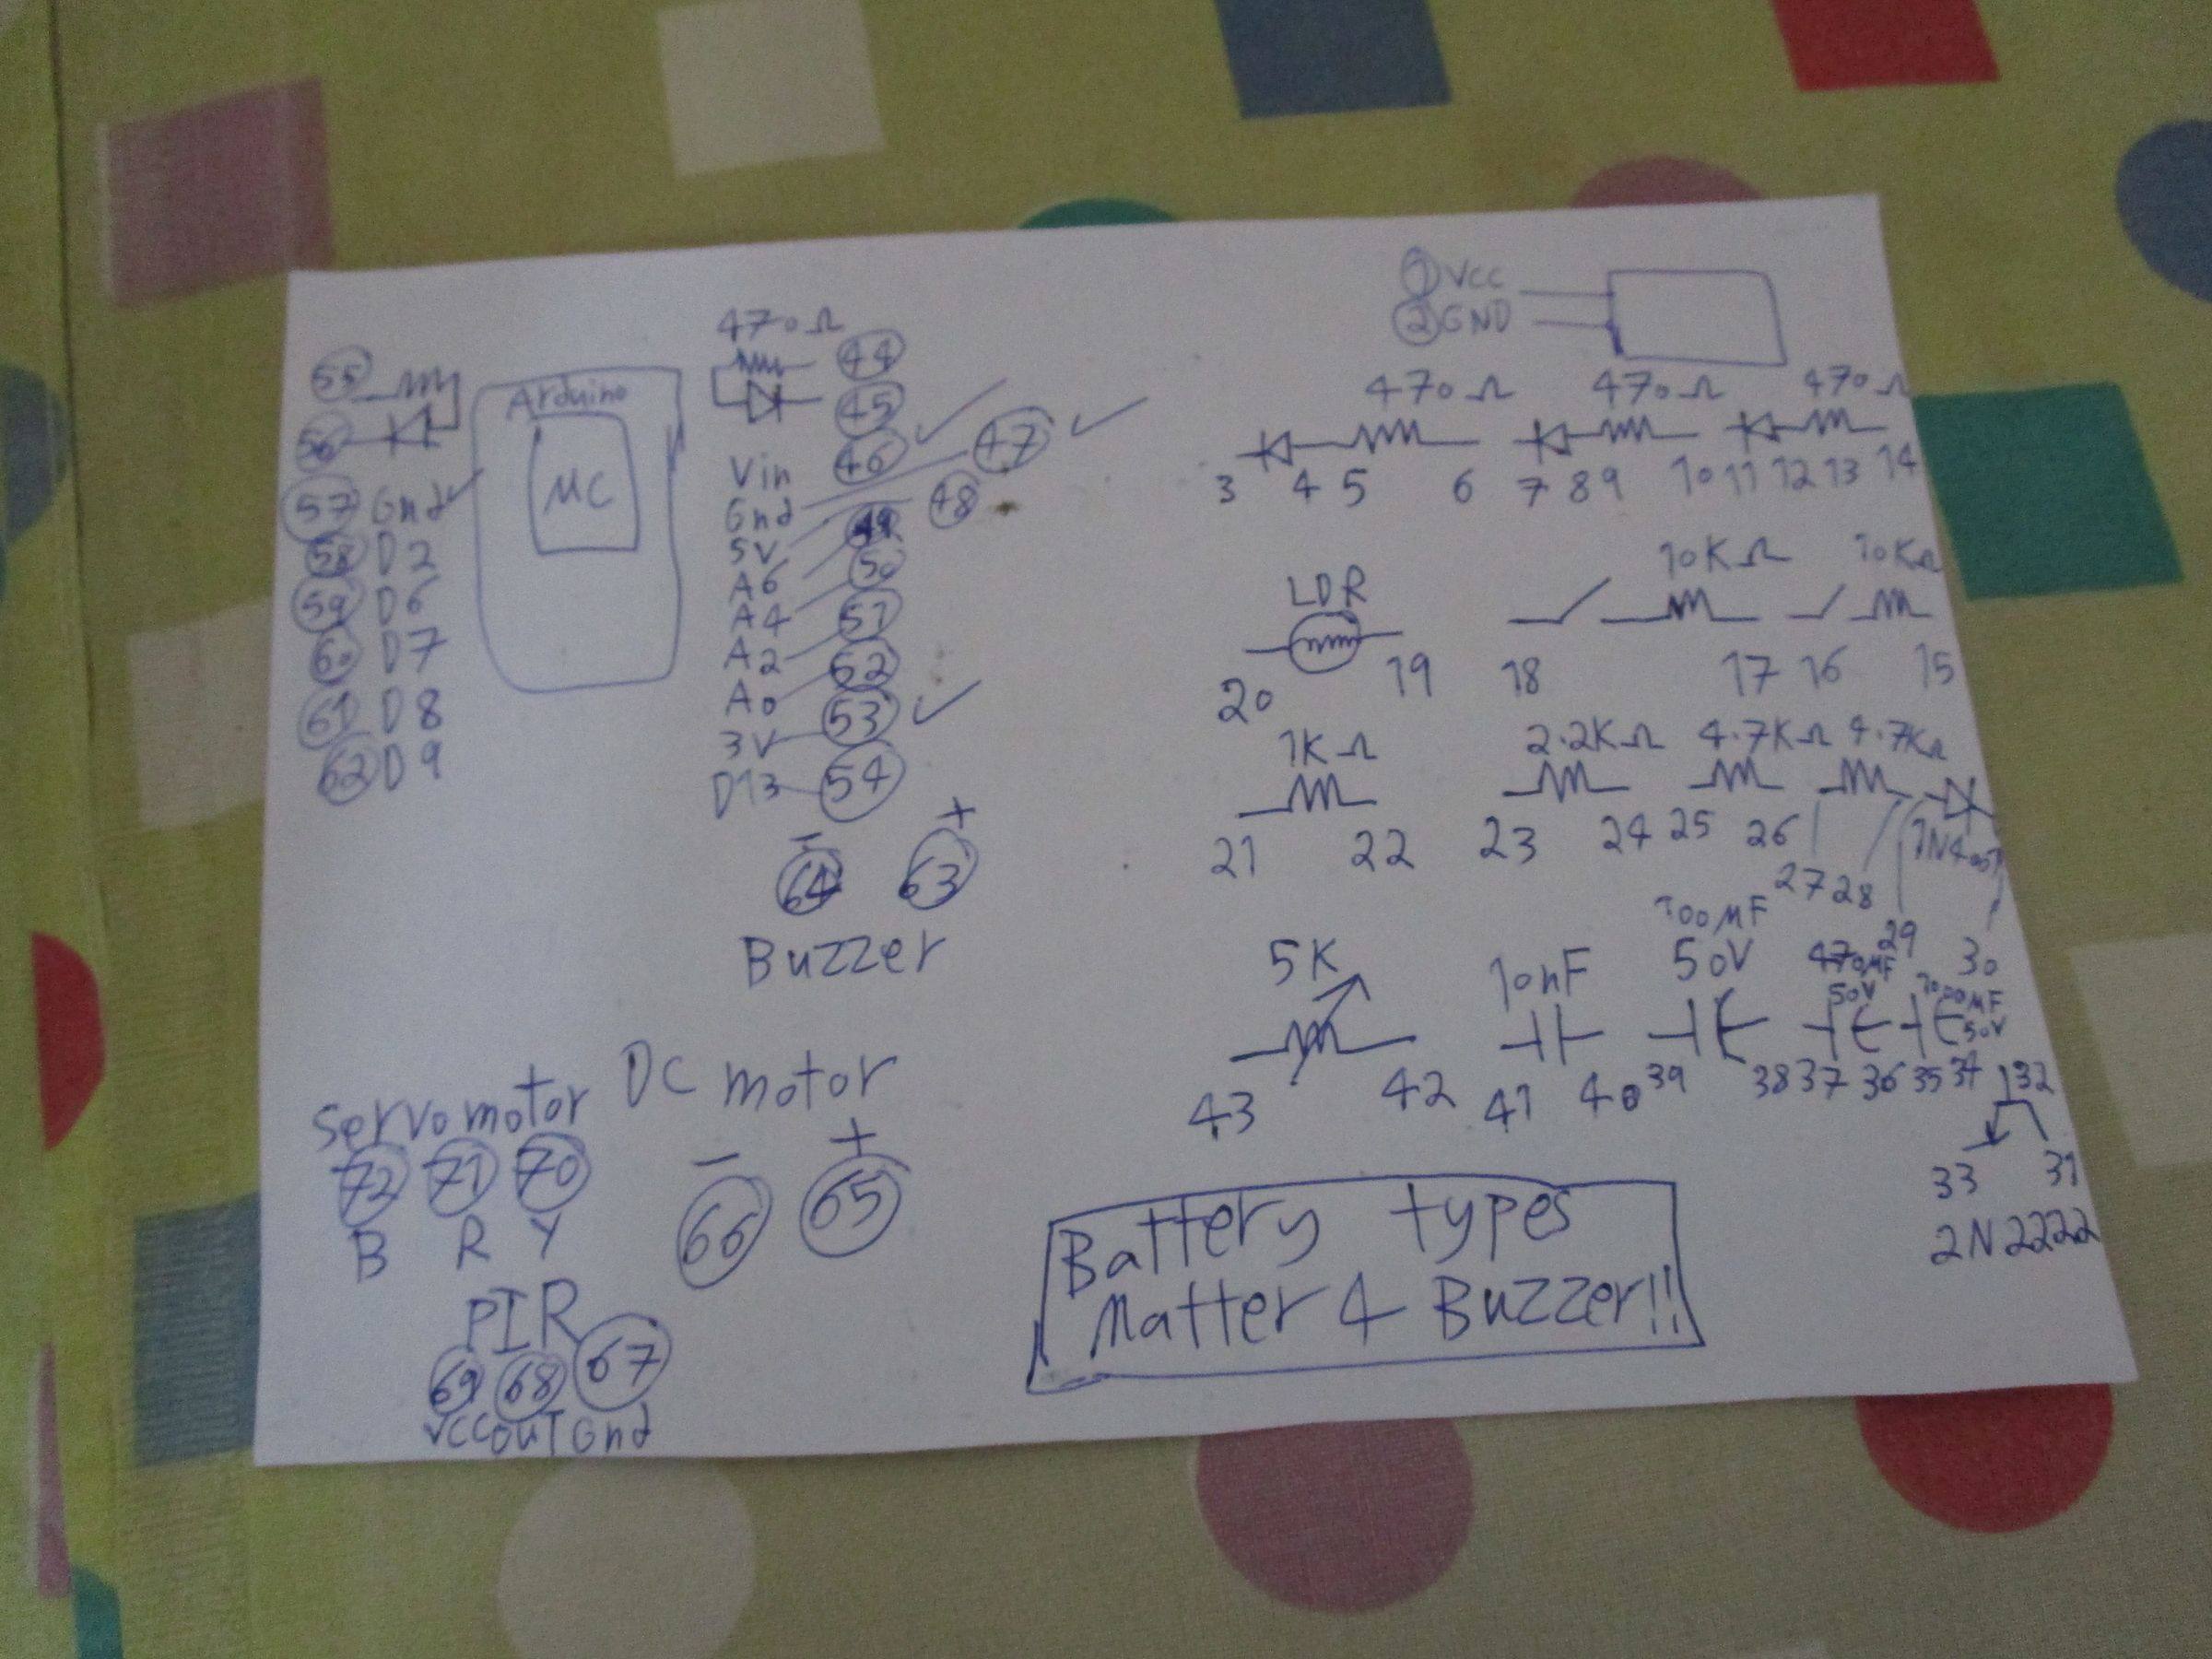 470Ω
55
44
56
45
Arduino
MC
Vin 46
47
57 Gnd
Gnd
48
58 D2
5V
49
59 D6
A6
50
60 D7
A4
51
61 D8
A2
52
62 D9
A0
53
3V
54
D13
- +
64 63
Buzzer
1 VCC
2 GND
470Ω 470Ω 470Ω
3 4 5 6 7 8 9 10 11 12 13 14
LDR 10KΩ 10KΩ
20 19 18 17 16 15
1KΩ 2.2KΩ 4.7KΩ 4.7KΩ
21 22 23 24 25 26 27 28 29 30
5K 10nF 100MF 50V 470MF 50V 1000MF 50V
43 42 41 40 39 38 37 36 35 34 32
33 31
2N2222
Servo motor
72 71 70
B R Y
DC motor
- +
66 65
PIR
69 68 67
VCC OUT Gnd
Battery types
Matter 4 Buzzer!!